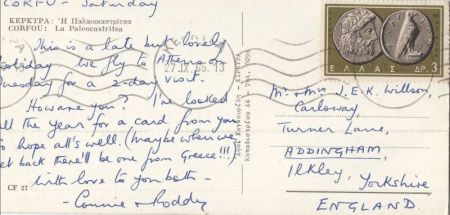 CORFU - Saturday
ΚΕΡΚΥΡΑ: Ἡ Παλαιοκαστρίτσα
CORFOU: La Paleocastritsa
This is a late but lovely
holiday. We fly to Athens on
Tuesday for a 2-day visit.
How are you? I've looked
all the year for a card from you
so hope all's well. (Maybe when we
get back there'll be one from Greece!!!)
With love to you both -
Connie & Roddy
CF 27
ΚΕΡΚΥΡΑ
ΕΛΛΑΣ ΔΡ. 3
Mr. & Mrs J.E.K. Willson,
Carloway
Turner Lane,
ADDINGHAM,
Ilkley, Yorkshire
ENGLAND